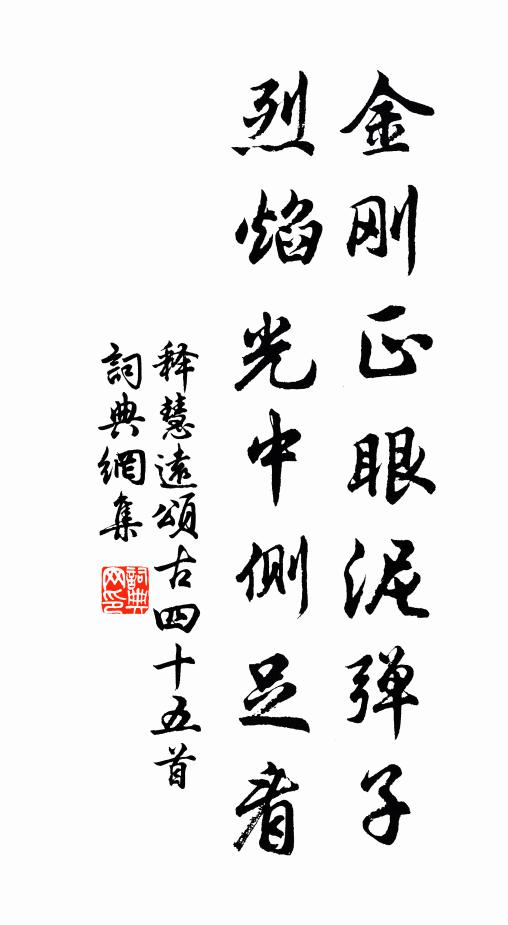 金刚正眼泥弹子
烈焰光中侧足看
释慧遠頌古四十五首
詞典網集
詞典网印